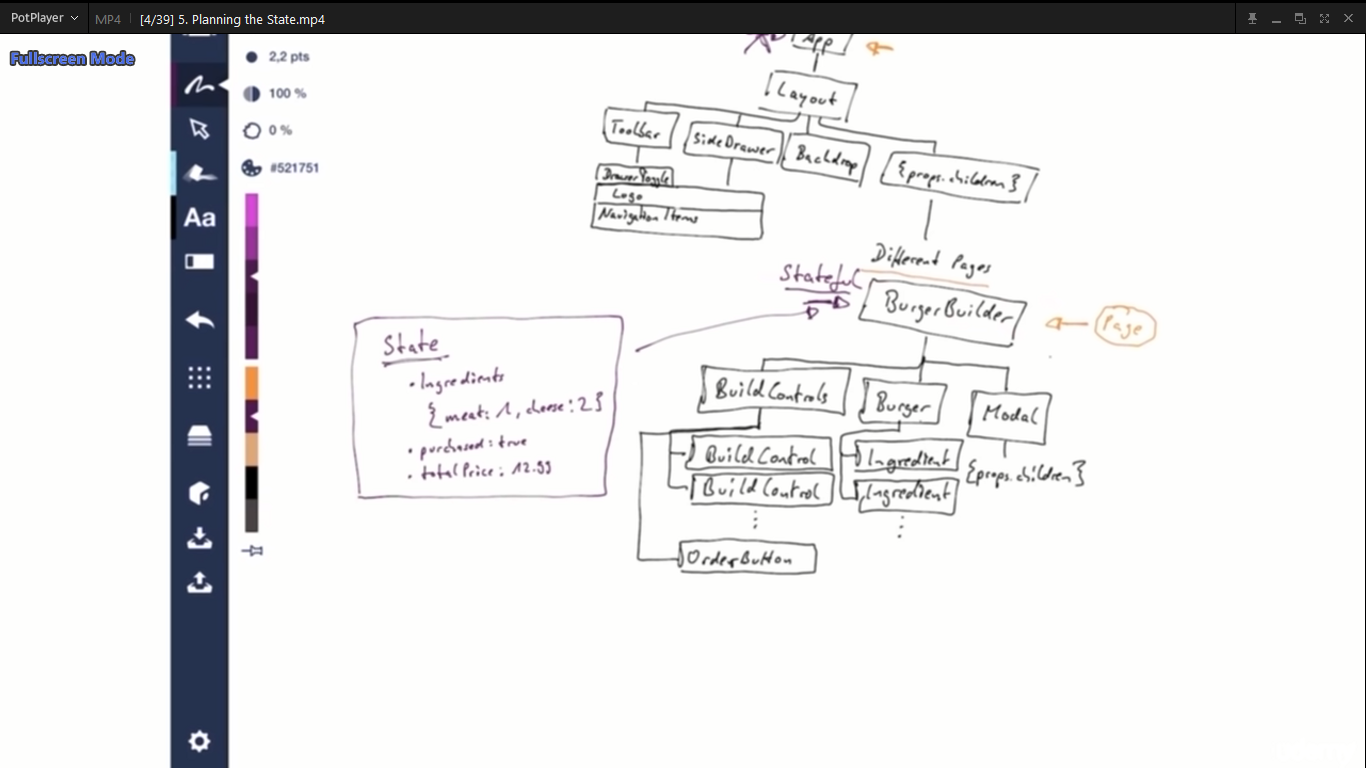 PotPlayer
MP4
[4/39] 5. Planning the State.mp4
Fullscreen Mode
2,2 pts
100 %
0 %
#521751
Aa
App
Layout
Toolbar
SideDrawer
Backdrop
{props.children}
DrawerToggle
Logo
Navigation Items
Different Pages
Stateful
BurgerBuilder
Page
State
• Ingredients
{meat: 1, cheese: 2}
• purchased: true
• totalPrice: 12.99
BuildControls
Burger
Modal
BuildControl
Ingredient
{props.children}
BuildControl
Ingredient
OrderButton